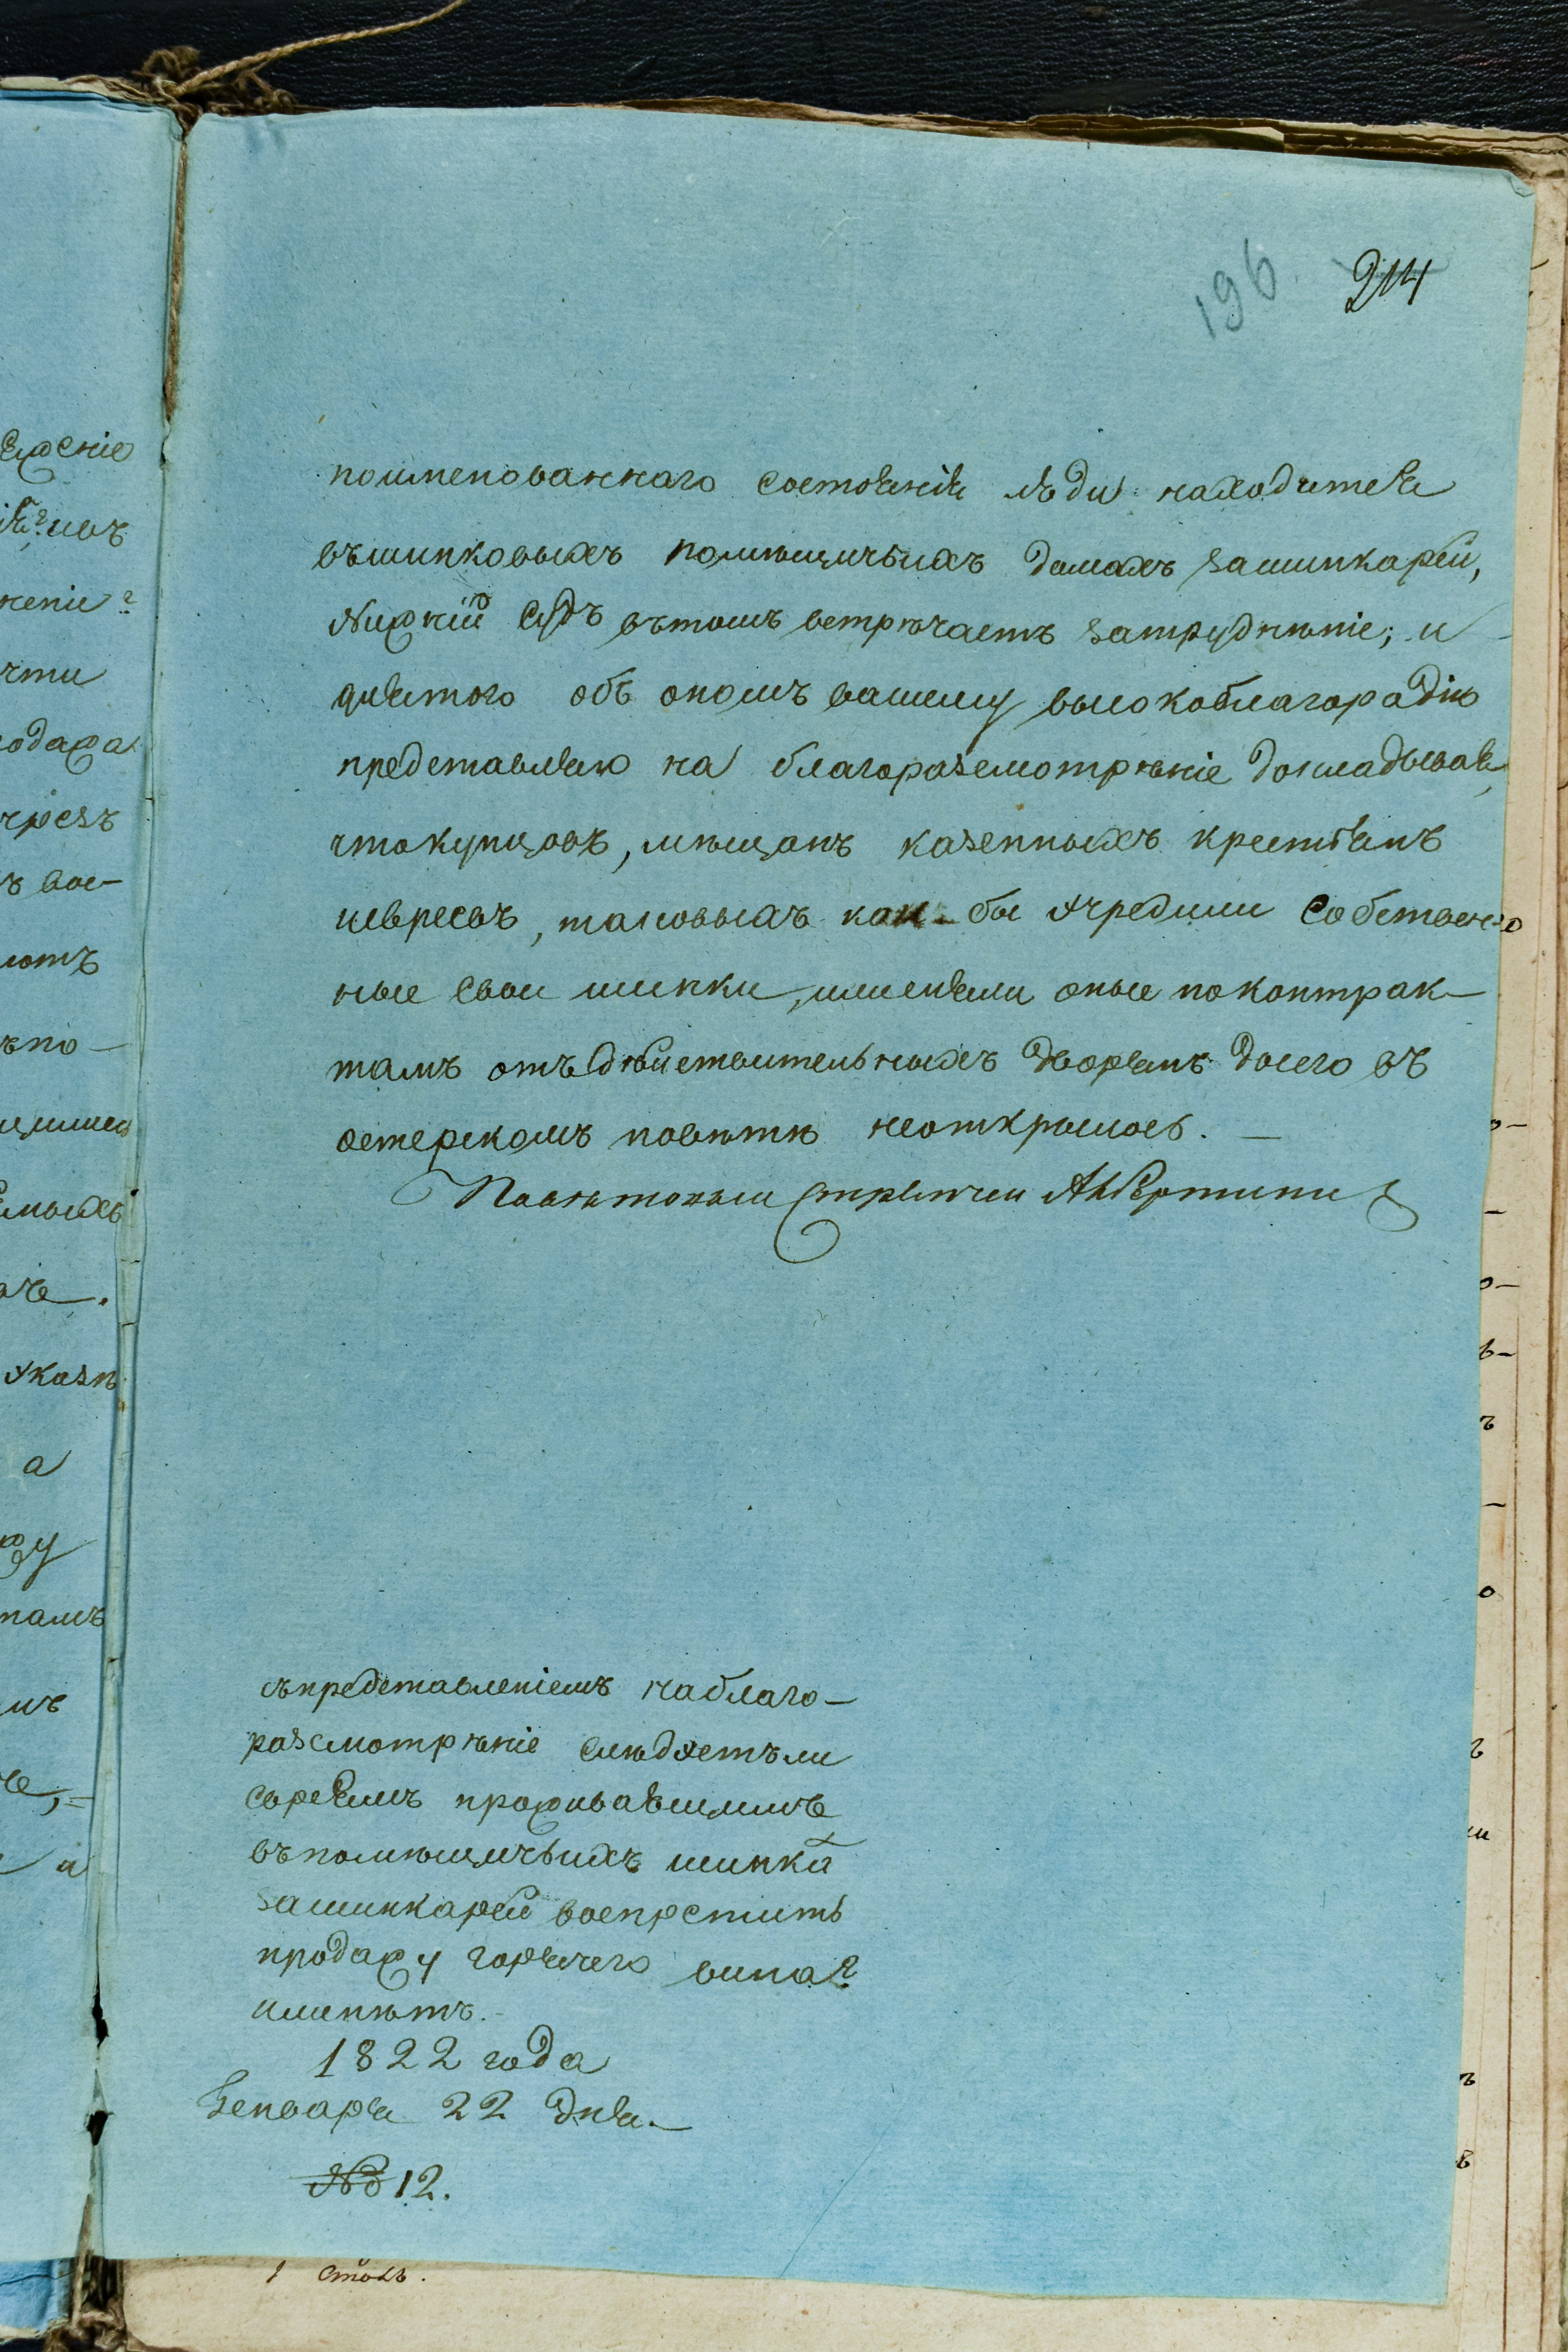 196 214
поименованнаго состоянія люди находятся
въшинковыхъ помѣщичьихъ домахъ зашинкарей,
Нижній Судъ вътомъ встрѣчаетъ затруднѣніе; и
длятого объ ономъ вашему высокоблагородію
представляю на благоразсмотрѣніе докладывая,
чтокупцовъ, мѣщанъ казенныхъ крестьянъ
иевреевъ, таковыхъ кои бы учредили собствен-
ные свои шинки, илиеняли оные поконтрак-
тамъ отъдѣйствительныхъ дворянъ досего въ
остерскомъ повѣтѣ неоткрылось. —
Повѣтовый Стряпчий
съпредставленіемъ наблаго-
разсмотрѣніе слѣдуетъли
евреямъ проживавшимъ
въпомѣщичьихъ шинка
зашинкарей воспретить
продажу горячего вина?
илинѣтъ.-
1822 года
Генваря 22 дня.
№ 12.
1 столъ.
ежеріе
ченіе
чти
чрезъ
вос-
ютъ
ъпо-
указѣ
а